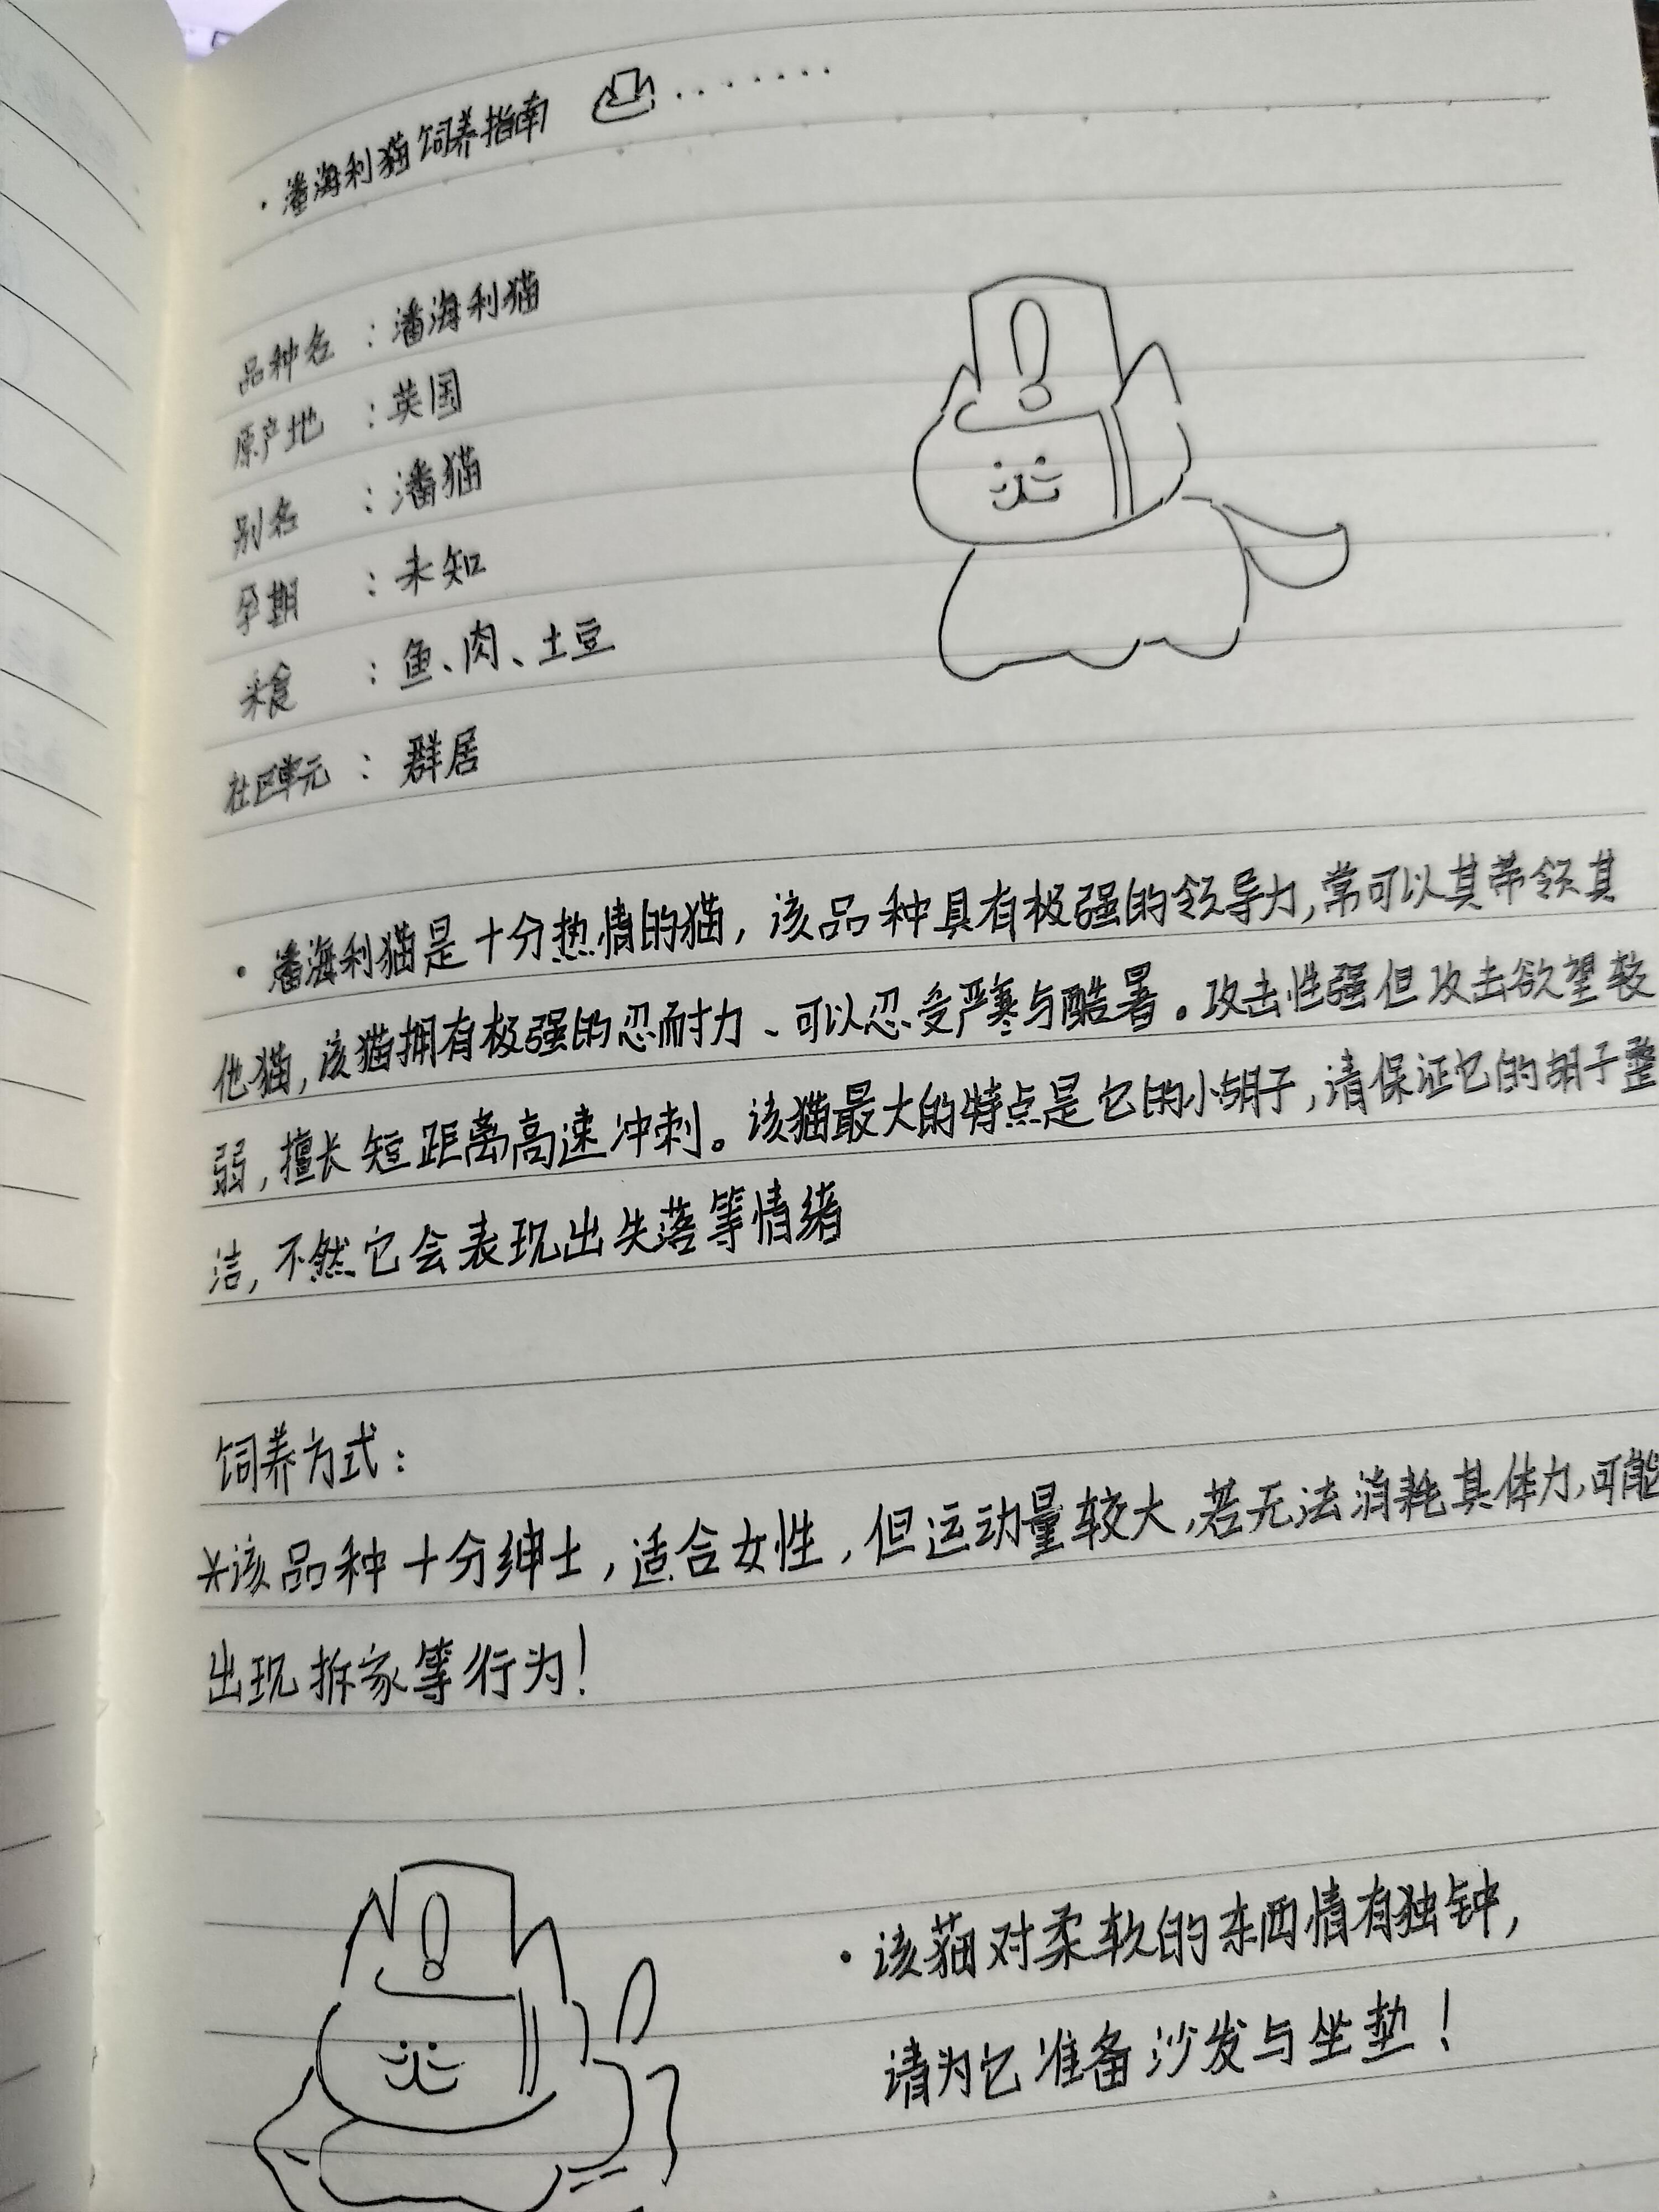 ·潘海利猫饲养指南 ........
品种名 : 潘海利猫
原产地 : 英国
别名 : 潘猫
孕期 : 未知
粮食 : 鱼、肉、土豆
社区单元 : 群居
·潘海利猫是十分热情的猫,该品种具有极强的领导力,常可以其带领其
他猫,该猫拥有极强的忍耐力、可以忍受严寒与酷暑。攻击性强但攻击欲望较
弱,擅长短距离高速冲刺。该猫最大的特点是它的小胡子,请保证它的胡子整
洁,不然它会表现出失落等情绪
饲养方式:
*该品种十分绅士,适合女性,但运动量较大,若无法消耗其体力,可能
出现拆家等行为!
·该猫对柔软的东西情有独钟,
请为它准备沙发与坐垫!